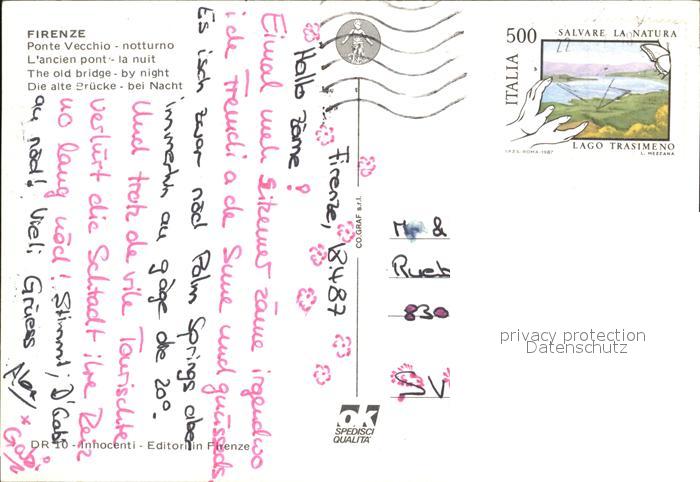 FIRENZE
Ponte Vecchio - notturno
L'ancien pont - la nuit
The old bridge - by night
Die alte Brücke - bei Nacht
Firenze, 18.4.87
Hallo zäme!
Eimal meh sitzemer zäme irgendwo
i de Fremdi a de Sune und gnüsseds
Es isch zwar nöd Palm Springs aber
immerhin au gäge die 20°.
Und trotz de vile Tourischte
verlürt die Schtadt ihre Reiz
no lang nöd! Stimmt, d'Gabi
au nöd! Vieli Grüess
Gabi
DR 10 - Innocenti - Editori in Firenze
CO.GRAF s.r.l.
ok
SPEDISCI
QUALITA'
&
830
500
SALVARE LA NATURA
ITALIA
LAGO TRASIMENO
I.P.Z.S. ROMA - 1987
L. MEZZANA
privacy protection
Datenschutz